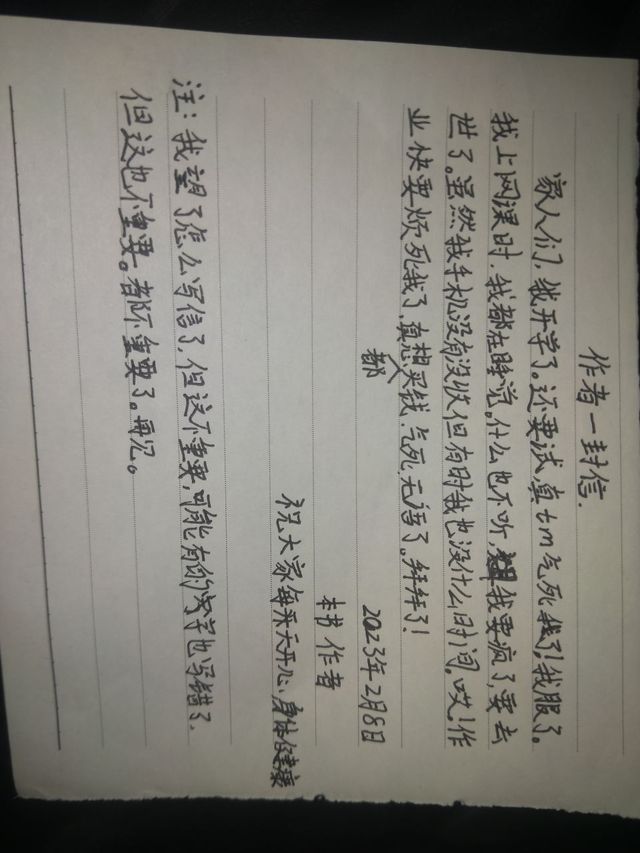 作者一封信.
家人们,我开学了。还要试,真tm气死我了!我服了。
我上网课时,我都在睡觉。什么也不听,我要疯了,要去
世了。虽然我手机没有没收但有时我也没什么时间。哎!作
业快要烦死我了,真心相买钱.气死,无语了。拜拜了!
都
2023年2月8日
本书作者
祝大家每天天开心、身体健康
注:我望了怎么写信了,但这不重要,可能有的字也写错了,
但这也不重要。都不重要了。再见。